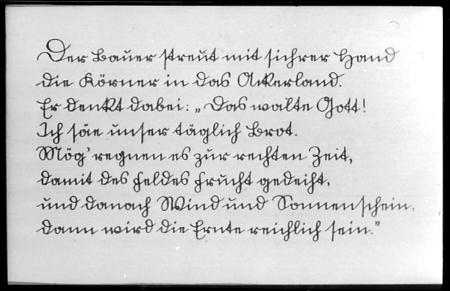 Der Bauer streut mit sichrer Hand
die Körner in das Ackerland.
Er denkt dabei: „Das walte Gott!
Ich säe unser täglich Brot.
Mög' regnen es zur rechten Zeit,
damit des Feldes Frucht gedeiht,
und danach Wind und Sonnenschein,
dann wird die Ernte reichlich sein."